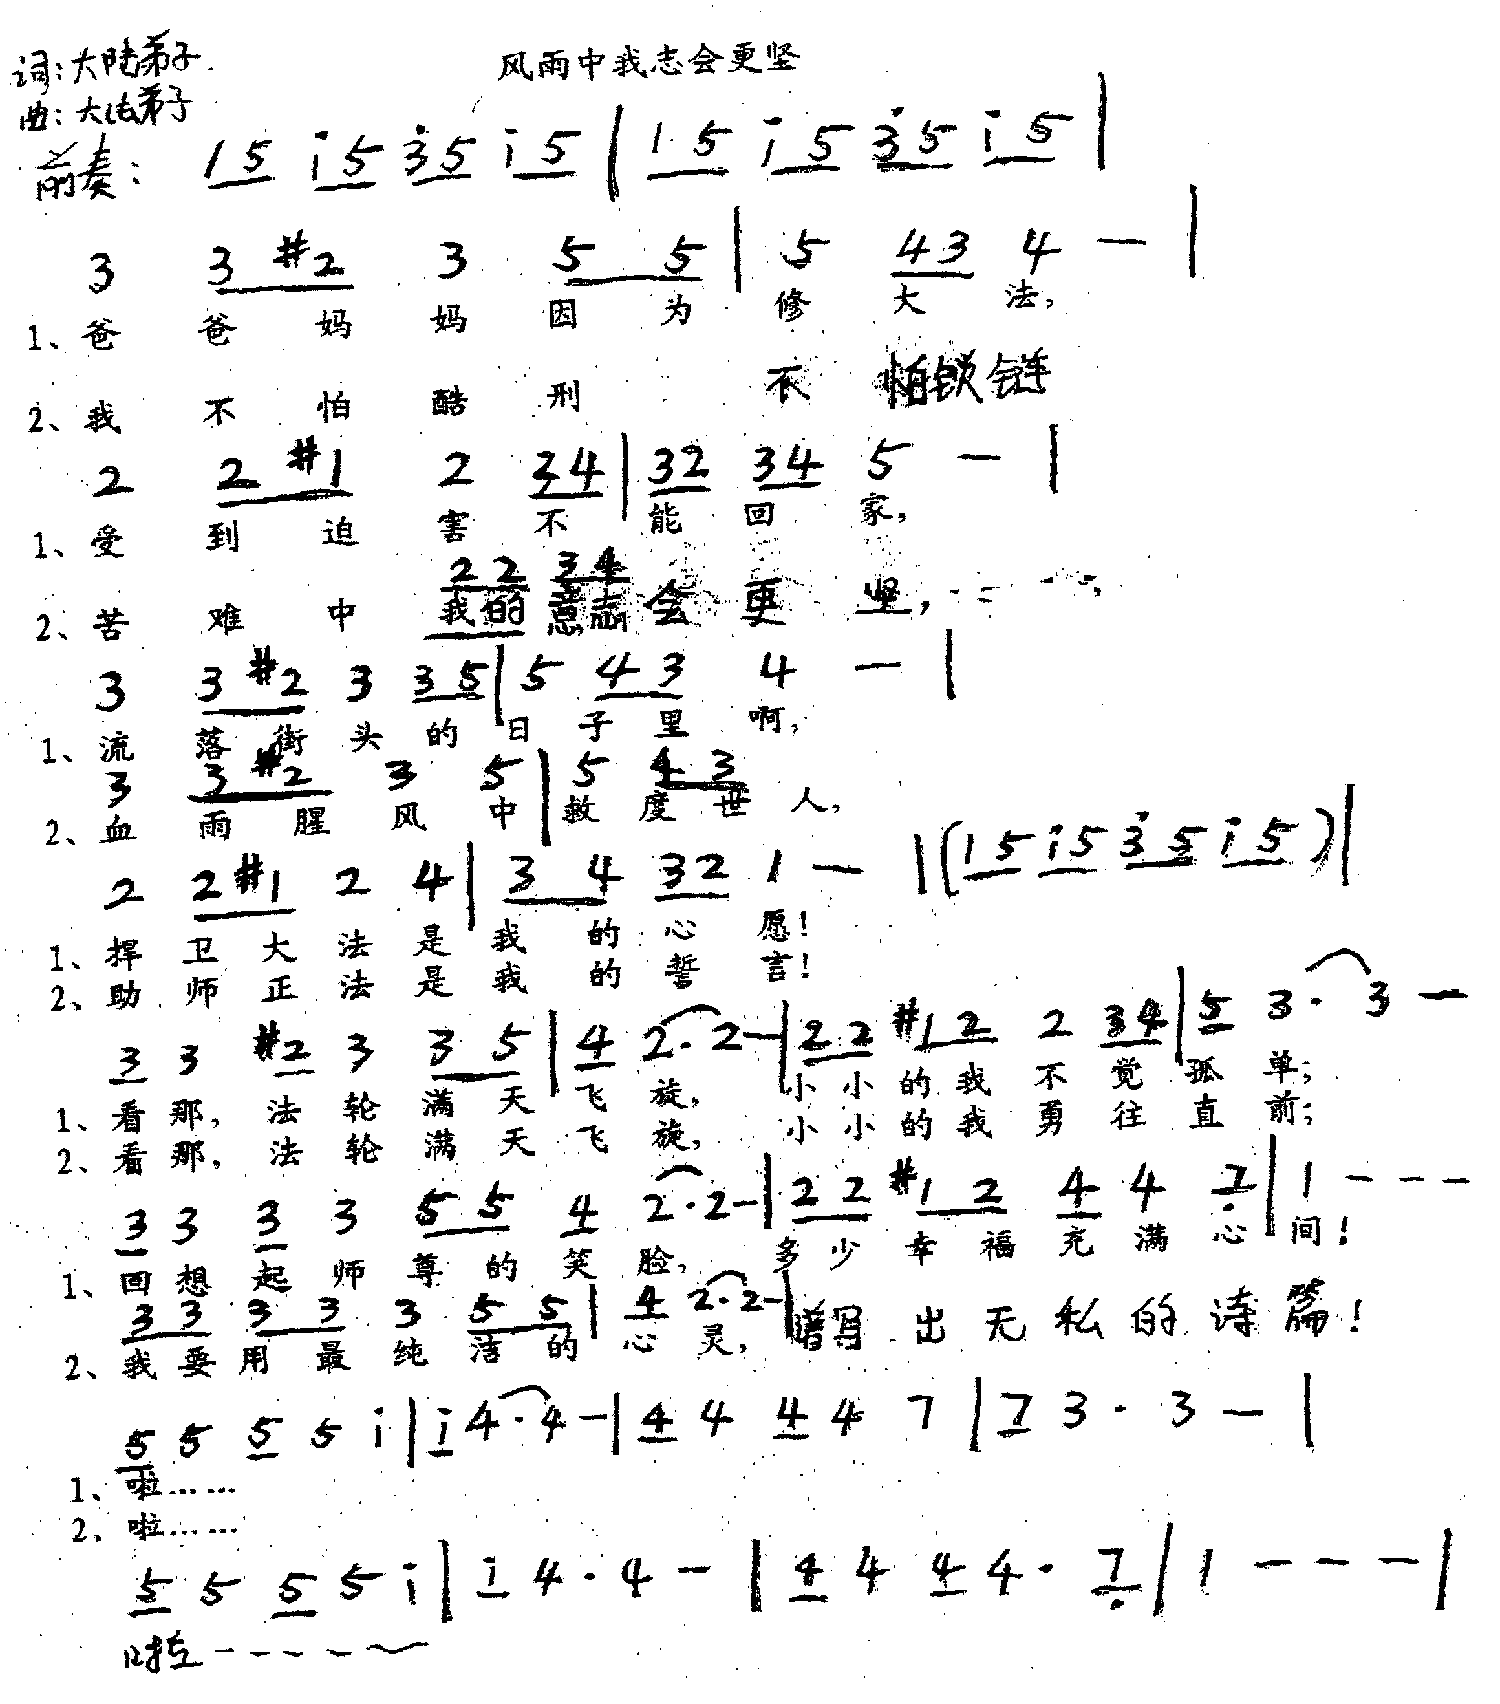 风雨中我志会更坚
词:大陆弟子.
曲:大法弟子
前奏: 1 5 i 5 3̇ 5 i 5 | 1 5 i 5 3̇ 5 i 5 |
3 3 #2 3 5 5 | 5 4 3 4 — |
1、爸 爸 妈 妈 因 为 修 大 法,
2、我 不 怕 酷 刑 不 怕 锁 链
2 2 #1 2 3 4 | 3 2 3 4 5 — |
1、受 到 迫 害 不 能 回 家,
2 2 3 4
2、苦 难 中 我 的 意 志 会 更 坚,
3 3 #2 3 3 5 | 5 4 3 4 — |
1、流 落 街 头 的 日 子 里 啊,
3 3 #2 3 5 | 5 4 3
2、血 雨 腥 风 中 救 度 世 人,
2 2 #1 2 4 | 3 4 3 2 1 — | ( 1 5 i 5 3̇ 5 i 5 ) |
1、捍 卫 大 法 是 我 的 心 愿!
2、助 师 正 法 是 我 的 誓 言!
3 3 #2 3 3 5 | 4 2· 2 — | 2 2 #1 2 2 3 4 | 5 3· 3 —
1、看 那, 法 轮 满 天 飞 旋, 小 小 的 我 不 觉 孤 单;
2、看 那, 法 轮 满 天 飞 旋, 小 小 的 我 勇 往 直 前;
3 3 3 3 5 5 4 2· 2 — | 2 2 #1 2 4 4 7̣ | 1 — — —
1、回 想 起 师 尊 的 笑 脸, 多 少 幸 福 充 满 心 间!
3 3 3 3 3 5 5 | 4 2· 2 — |
2、我 要 用 最 纯 洁 的 心 灵, 谱 写 出 无 私 的 诗 篇!
5 5 5 5 i | i 4· 4 — | 4 4 4 4 7 | 7 3 · 3 — |
1、啦……
2、啦……
5 5 5 5 i | i 4 · 4 — | 4 4 4 4 · 7̣ | 1 — — — |
啦 - - - - ~